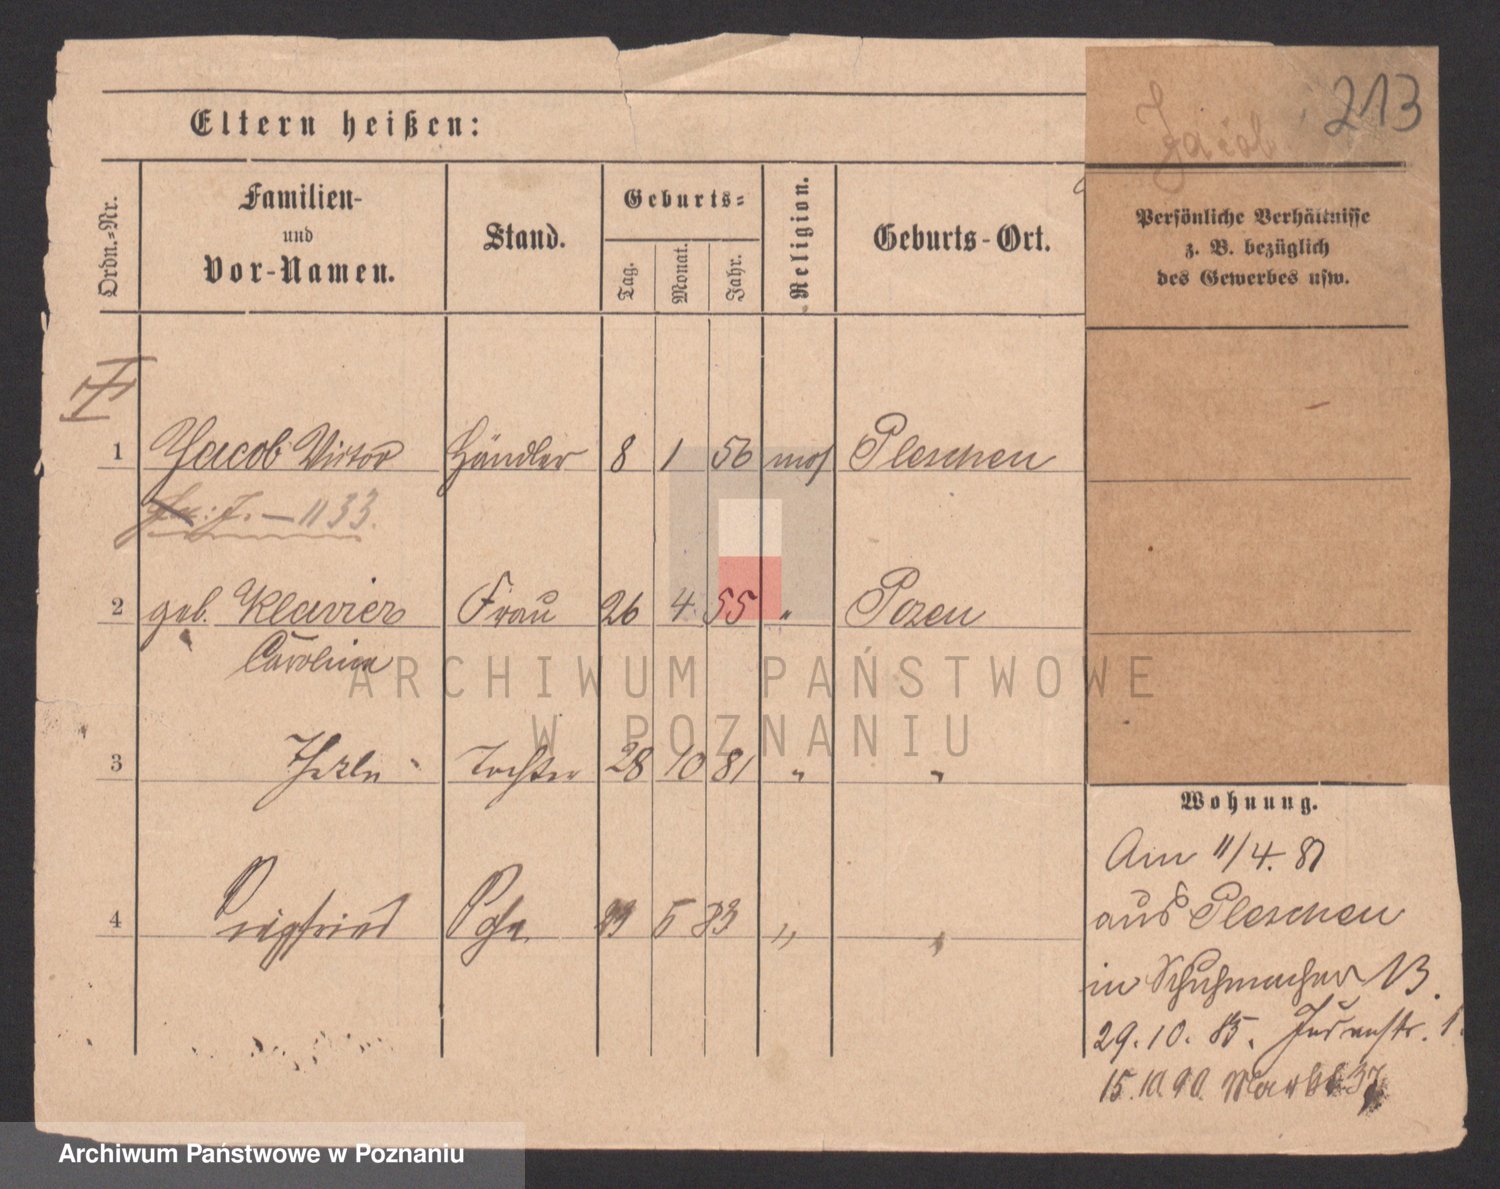 Jacob
213
Eltern heißen:
Ordn.-Nr.
Familien-
und
Vor-Namen.
Stand.
Geburts-
Tag.
Monat.
Jahr.
Religion.
Geburts-Ort.
Persönliche Verhältnisse
z. B. bezüglich
des Gewerbes usw.
1 Jacob Victor Händler 8 1 56 mos Pleschen
J. — 1133.
2 geb. Klavier Frau 26 4 55 " Posen
Carolina
3 Tochter 28 10 81 " "
4 Siegfried Sohn 5 83 " "
Wohnung.
Am 11/4. 81
aus Pleschen
in Schuhmacher 13.
29. 10. 85. Judenstr. 1.
15. 10. 90. Markt 37
ARCHIWUM PAŃSTWOWE
W POZNANIU
Archiwum Państwowe w Poznaniu